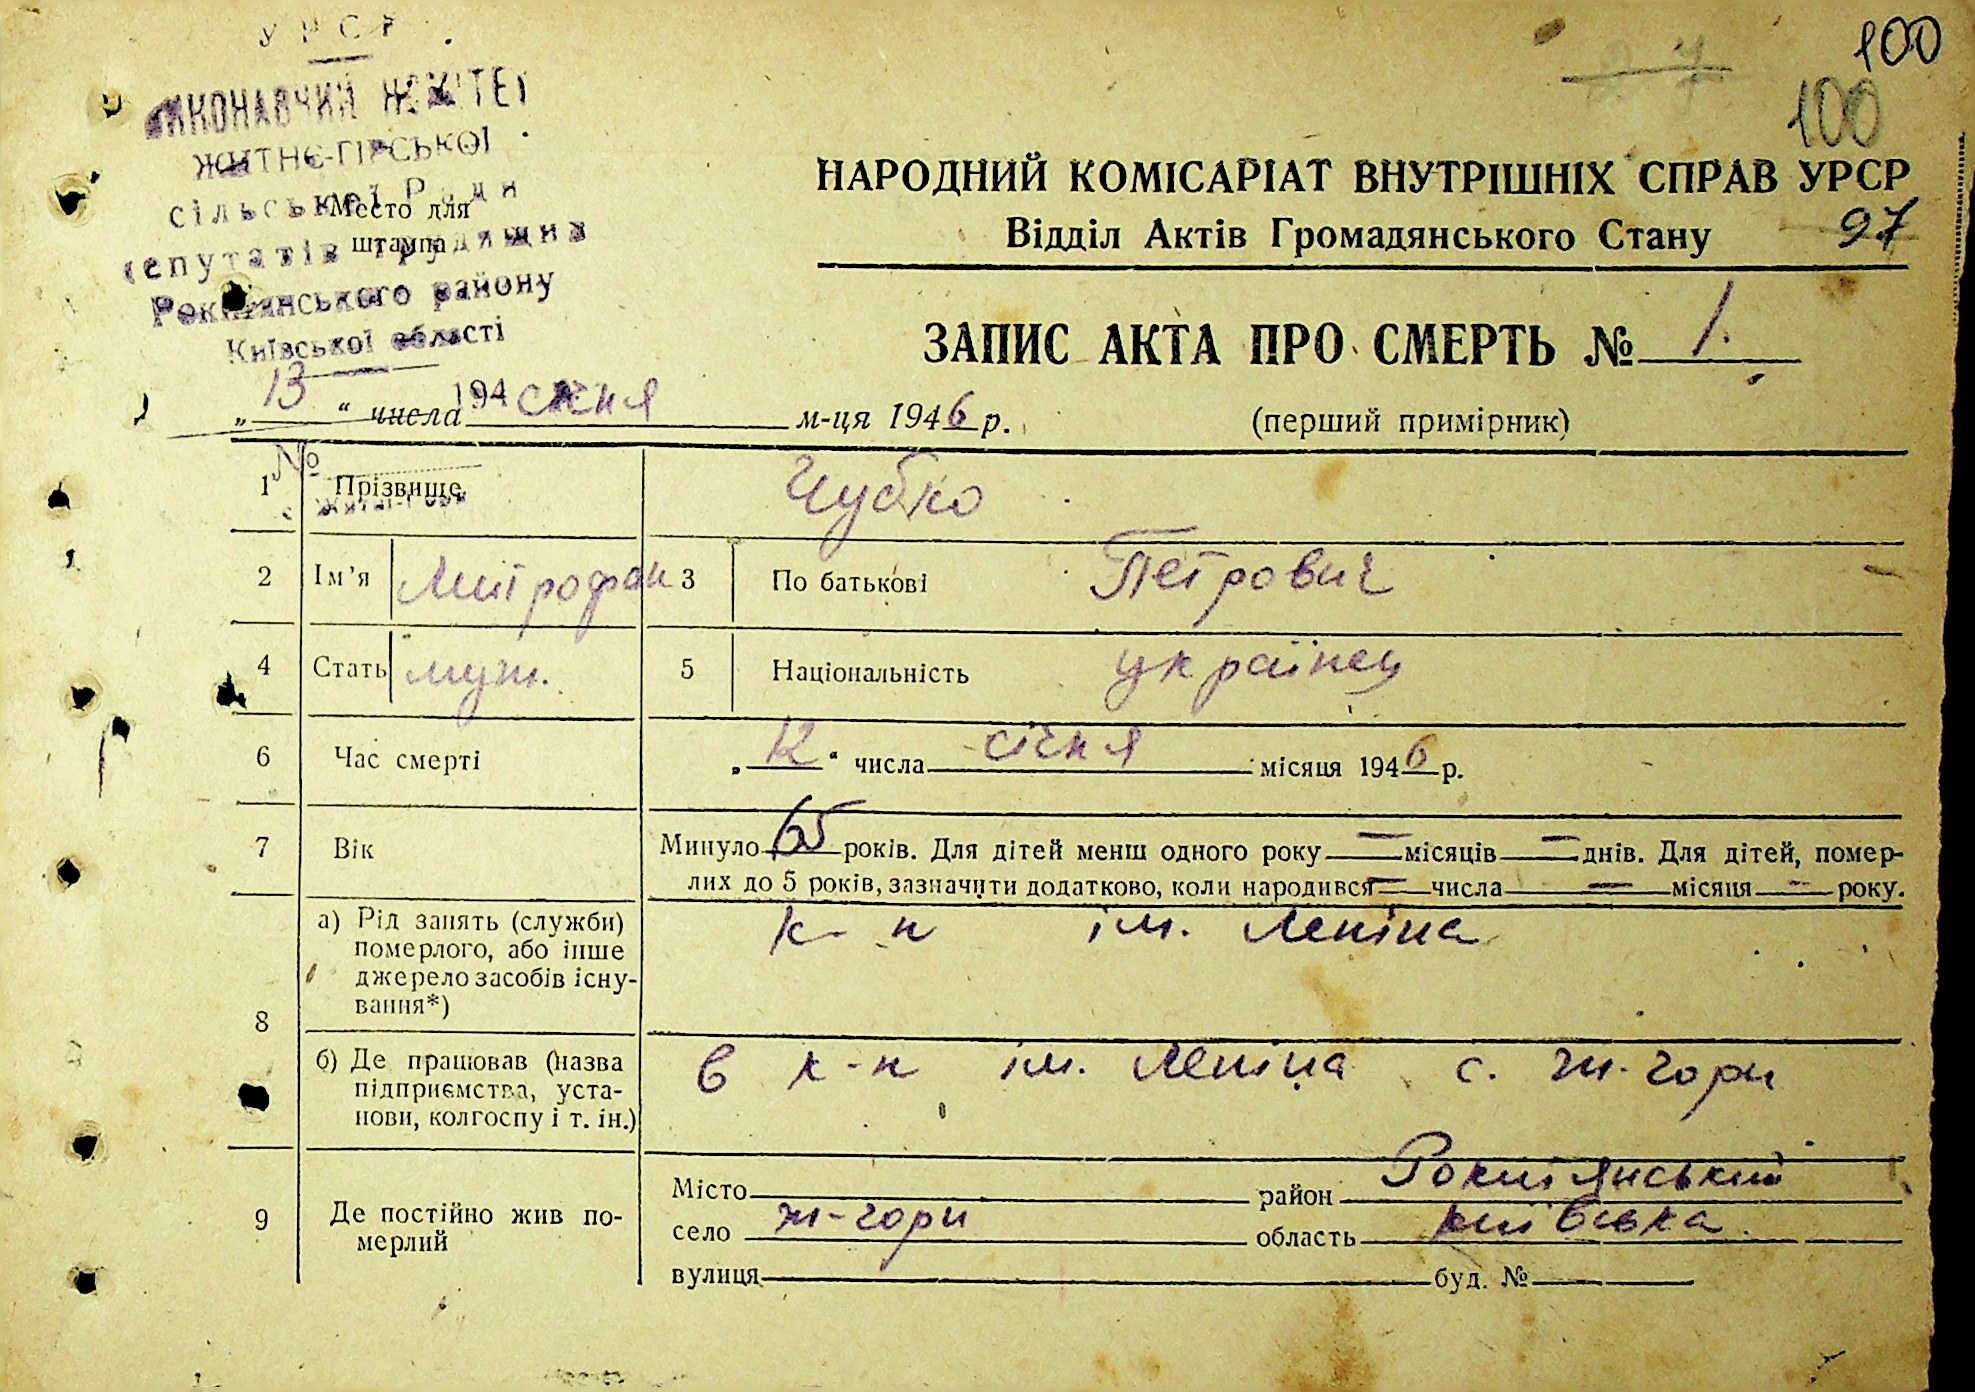 УРСР
ВИКОНАВЧИЙ КОМІТЕТ
ЖИТНЄ-ГІРСЬКОЇ
сільської Ради
депутатів трудящих
Рокитнянського району
Київської області
Место для
штампа
194
№
100
100
97
НАРОДНИЙ КОМІСАРІАТ ВНУТРІШНІХ СПРАВ УРСР
Відділ Актів Громадянського Стану
ЗАПИС АКТА ПРО СМЕРТЬ № 1.
„13“ числа січня м-ця 1946 р.
(перший примірник)
1 Прізвище Чубко
2 Ім'я Митрофан 3 По батькові Петрович
4 Стать муж. 5 Національність українец
6 Час смерті „12“ числа січня місяця 1946 р.
7 Вік Минуло 65 років. Для дітей менш одного року — місяців — днів. Для дітей, помер-
лих до 5 років, зазначити додатково, коли народився — числа — місяця — року.
8 а) Рід занять (служби) к-п ім. Леніна
померлого, або інше
джерело засобів існу-
вання*)
б) Де працював (назва в к-п ім. Леніна с. ж-гори
підприємства, уста-
нови, колгоспу і т. ін.)
9 Де постійно жив по-
мерлий
Місто район Рокитянський
село ж-гори область київська
вулиця буд. №